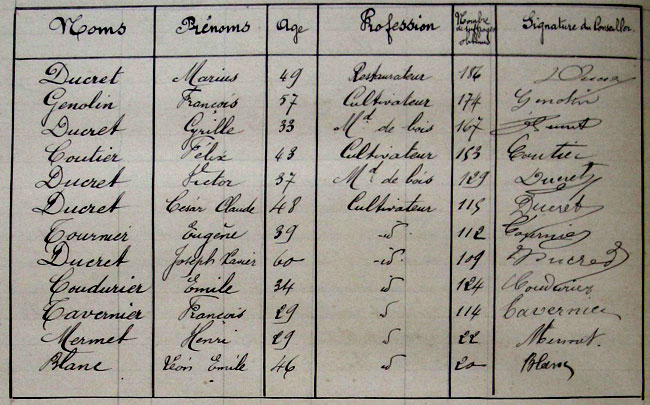 Noms Prénoms Age Profession Nombre de suffrages obtenus Signature du Conseiller
Ducret Marius 49 Restaurateur 186
Genolin François 57 Cultivateur 174 Genolin
Ducret Cyrille 33 Md de bois 167
Coutier Félix 43 Cultivateur 153 Coutier
Ducret Victor 37 Md de bois 129 Ducret
Ducret César Claude 48 Cultivateur 115 Ducret
Tournier Eugène 39 -id- 112 Tournier
Ducret Joseph Xavier 60 -id- 109 Ducret
Coudurier Emile 34 id 124 Coudurier
Tavernier François 29 id 114 Tavernier
Mermet Henri 29 id 22 Mermet.
Blanc Léon Emile 46 id 20 Blanc